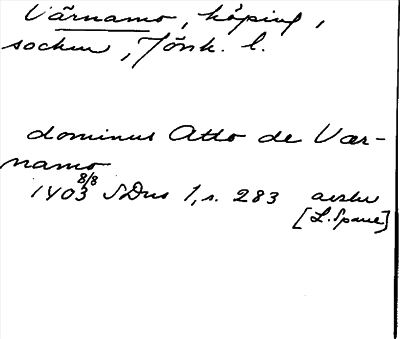 Värnamo, köping,
socken, Jönk. l.
dominus Atto de Vær-
namo
1403 8/8 SDns 1, s. 283 avskr
[L. Sparre]